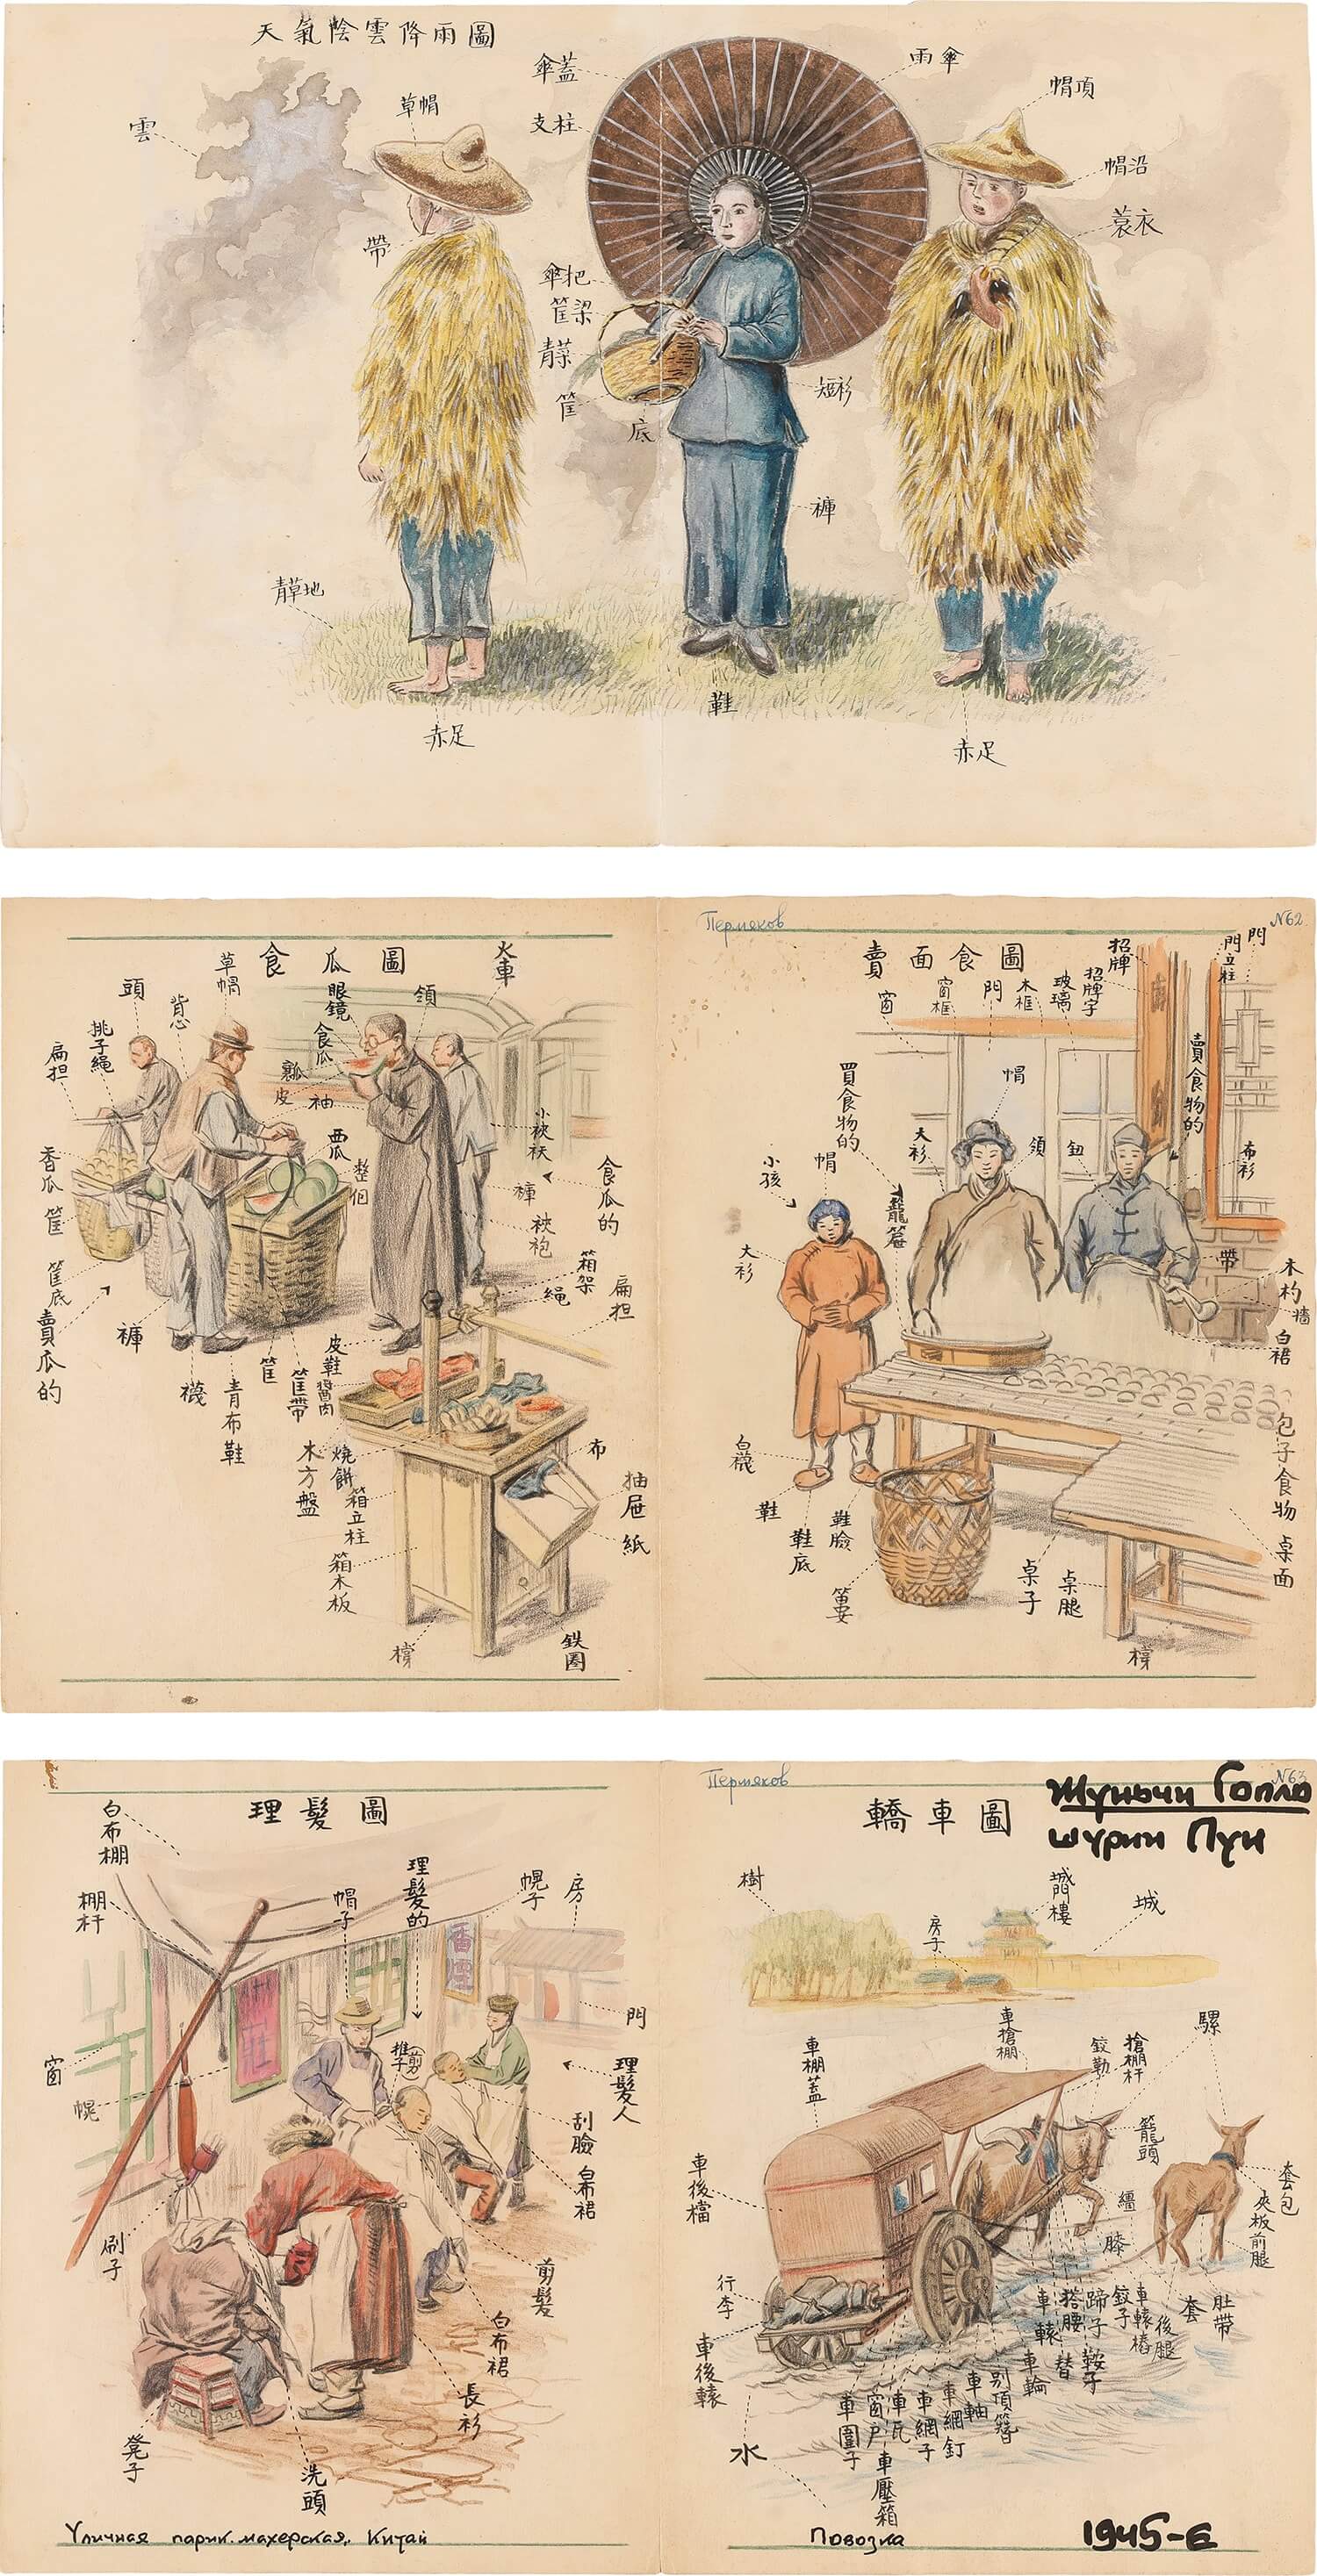 天氣陰雲降雨圖
雲
草帽
帶
傘蓋
支柱
雨傘
帽頂
帽沿
蓑衣
傘把
筐梁
青菜
筐
底
短衫
褲
青草地
赤足
鞋
赤足
食瓜圖
火車
頭
背心
草帽
眼鏡
領
扁担
挑子繩
食瓜
瓤
皮
袖
西瓜
整個
香瓜
筐
筐底
賣瓜的
褲
襪
青布鞋
筐
筐帶
皮鞋
醬肉
褲
袂袍
食瓜的
箱架
繩
扁担
木方盤
燒餅
箱立柱
箱木板
布
抽屉
紙
橕
鉄圈
Пермяков
N62
賣面食圖
窗
窗框
門
木框
玻璃
招牌字
招牌
門立柱
門
買食物的
小孩
帽
大衫
籠篦
大衫
帽
領
鈕
賣食物的
布衫
帶
木杓
墻
白裙
包子食物
桌面
白襪
鞋
鞋底
鞋臉
簍
桌子
桌腿
橕
理髮圖
白布棚
棚杆
帽子
理髮的
幌子
房
香煙
門
窗
幌
推子(剪)
理髮人
刮臉
白布裙
刷子
剪髮
白布裙
長衫
凳子
洗頭
Уличная парикмахерская, Китай
Пермяков
N63
轎車圖
шурин Пуи
樹
房子
城門樓
城
車棚蓋
車槍棚
鉸勒
搶棚杆
騾
籠頭
車後檔
套包
夾板
前腿
繮
膝
行李
車後轅
車轅
搭腰
蹄子
鉸子
車轅樁
後腿
套
肚帶
替
鞍子
車輪
別頂簪
車軸
車網釘
車網子
車瓦
窗户
車圍子
車壓箱
水
Повозка
1945-Е